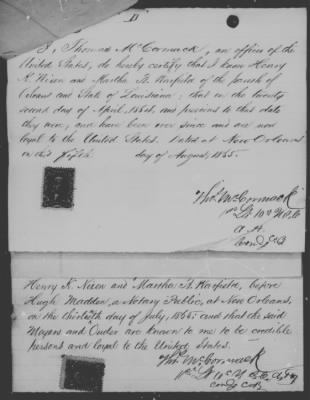 D
I, Thomas McCormack, an officer of the
United States, do hereby certify that I know Henry
K. Nixon and Martha A. Warfield of the parish of
Orleans and State of Louisiana; that on the twenty
second day of April, 1864, and previous to that date
they were, and have been ever since and are now
loyal to the United States. Dated at New Orleans
on this Fifth day of August, 1865.
Thos. McCormack
1st Lt 10th
Henry K. Nixon and Martha A. Warfield, before
Hugh Madden, a Notary Public, at New Orleans,
on the thirtieth day of July, 1865: and that the said
Mayers and Ouder are known to me to be credible
persons and loyal to the United States.
Thos. McCormack
1st Lt 10th